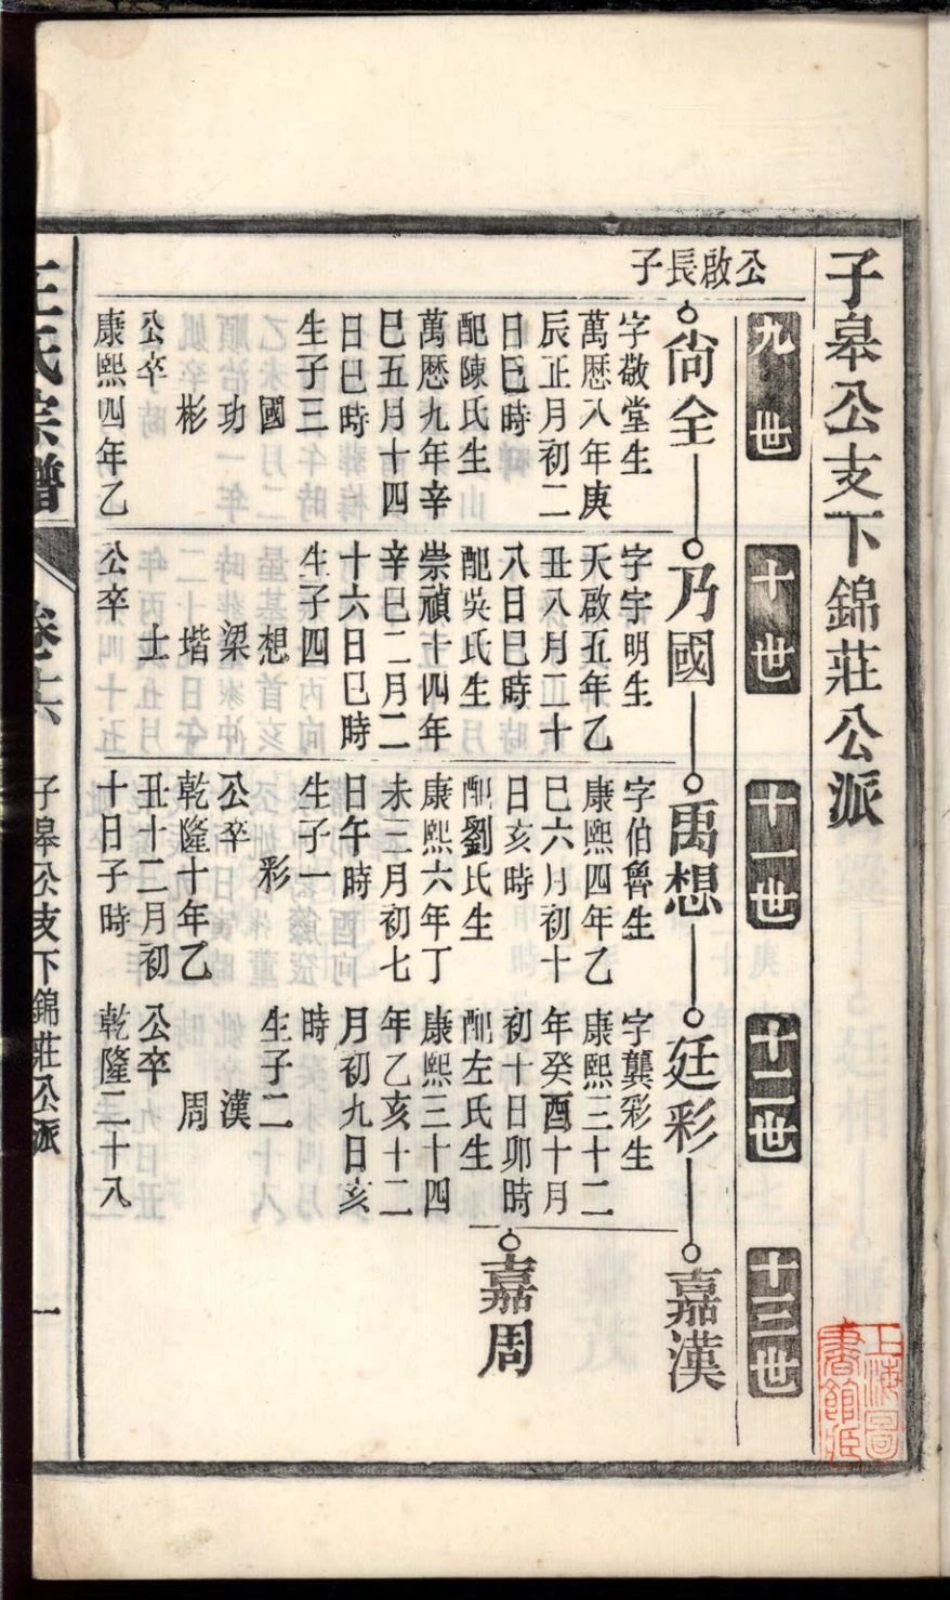 子皋公支下錦莊公派
九世
十世
十一世
十二世
十三世
公啟長子
尙全
字敬堂生
萬歴八年庚
辰正月初二
日巳時
配陳氏生
萬歴九年辛
巳五月十四
日巳時
生子三
國
功
彬
公卒
康熙四年乙
乃國
字宇明生
天啟五年乙
丑八月二十
八日巳時
配吳氏生
崇禎十四年
辛巳二月二
十六日巳時
生子四
想
梁
堦
士
公卒
禹想
字伯魯生
康熙四年乙
巳六月初十
日亥時
配劉氏生
康熙六年丁
未三月初七
日午時
生子一
彩
公卒
乾隆十年乙
丑十二月初
十日子時
廷彩
字龔彩生
康熙三十二
年癸酉十月
初十日卯時
配左氏生
康熙三十四
年乙亥十二
月初九日亥
時
生子二
漢
周
公卒
乾隆二十八
嘉漢
嘉周
王氏宗譜
卷之六
子皋公支下錦莊公派
一
上海圖
書館